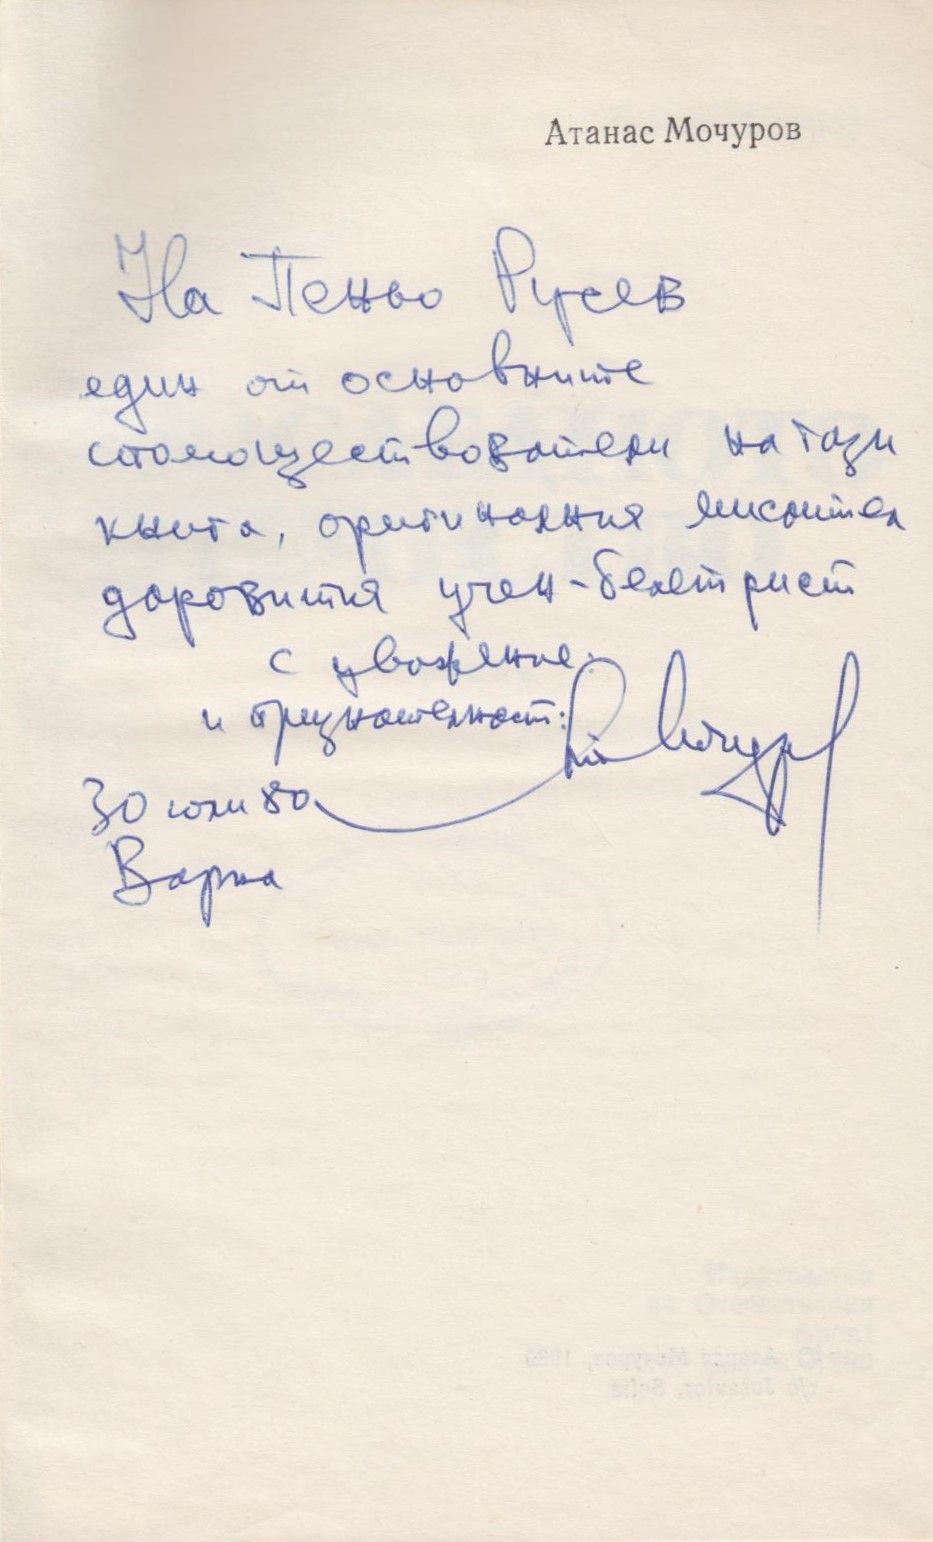 Атанас Мочуров
На Пеньо Русев
един от основните
спомоществователи на тази
книга, оригиналния мислител
даровития учен-белетрист
с уважение
и признателност:
30 юли 80
Варна
© Атанас Мочуров, 1980
c/o Jusautor, Sofia